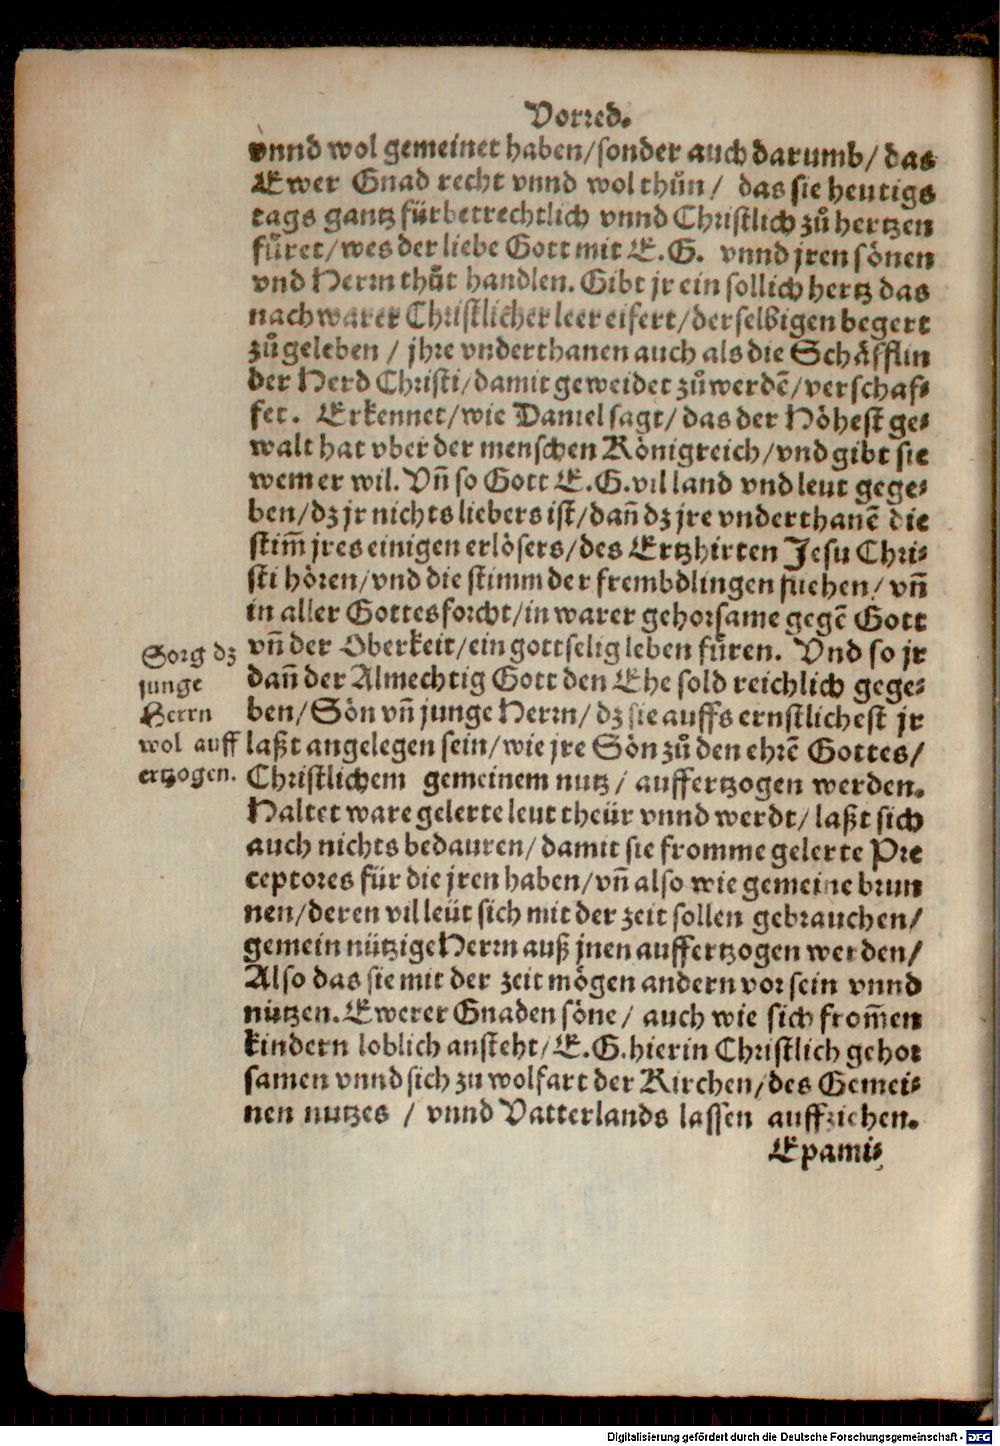 Vorred.
vnnd wol gemeinet haben/sonder auch darumb/ das
Ewer Gnad recht vnnd wol thůn/ das sie heutigs
tags gantz fürbetrechtlich vnnd Christlich zů hertzen
fůret/wes der liebe Gott mit E.G. vnnd jren sönen
vnd Herrn thůt handlen. Gibt jr ein sollich hertz das
nach warer Christlicher leer eifert/derselbigen begert
zů geleben / jhre vnderthanen auch als die Schäfflin
der Herd Christi/damit geweidet zů werdẽ/verschaf⸗
fet. Erkennet/wie Daniel sagt/das der Höhest ge⸗
walt hat vber der menschen Königreich/vnd gibt sie
wem er wil. Vñ so Gott E.G.vil land vnd leut gege⸗
ben/dz jr nichts liebers ist/dañ dz jre vnderthanẽ die
stim̃ jres einigen erlösers/des Ertzhirten Jesu Chri⸗
sti hören/vnd die stimm der frembdlingen fliehen/vñ
in aller Gottesforcht/in warer gehorsame gegẽ Gott
vñ der Oberkeit/ein gottselig leben fůren. Vnd so jr
dañ der Almechtig Gott den Ehe sold reichlich gege⸗
ben/Sön vñ junge Herrn/dz sie auffs ernstlichest jr
laßt angelegen sein/wie jre Sön zů den ehrẽ Gottes/
Christlichem gemeinem nutz/ auffertzogen werden.
Haltet ware gelerte leut theür vnnd werdt/laßt sich
auch nichts bedauren/damit sie fromme gelerte Pre
ceptores für die jren haben/vñ also wie gemeine brun
nen/deren vil leüt sich mit der zeit sollen gebrauchen/
gemein nützige Herrn auß jnen auffertzogen werden/
Also das sie mit der zeit mögen andern vor sein vnnd
nützen. Ewerer Gnaden söne/ auch wie sich from̃en
kindern loblich ansteht/E.G.hierin Christlich gehor
samen vnnd sich zu wolfart der Kirchen/des Gemei⸗
nen nutzes / vnnd Vatterlands lassen auffziehen.
Epami⸗
Sorg dz
junge
Herrn
wol auff
ertzogen.
Digitalisierung gefördert durch die Deutsche Forschungsgemeinschaft - DFG